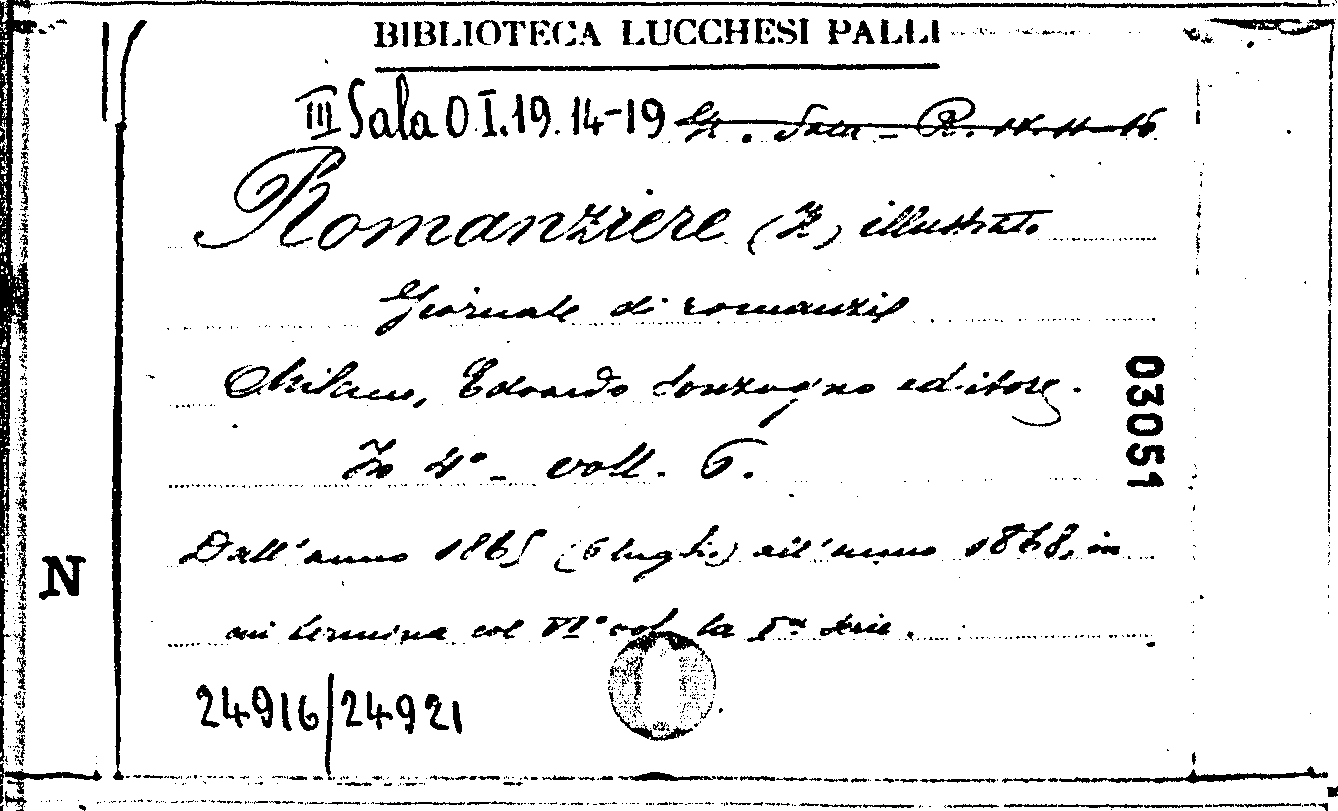 BIBLIOTECA LUCCHESI PALLI
III Sala O I. 19. 14-19
Romanziere (Il) illustrato
Giornale di romanzi
Milano, Edoardo Sonzogno editore.
In 4° - voll. 6.
03051
Dall'anno 1865 (6 luglio) all'anno 1868, in
N
cui termina col VI° vol. la Iª serie.
24916/24921